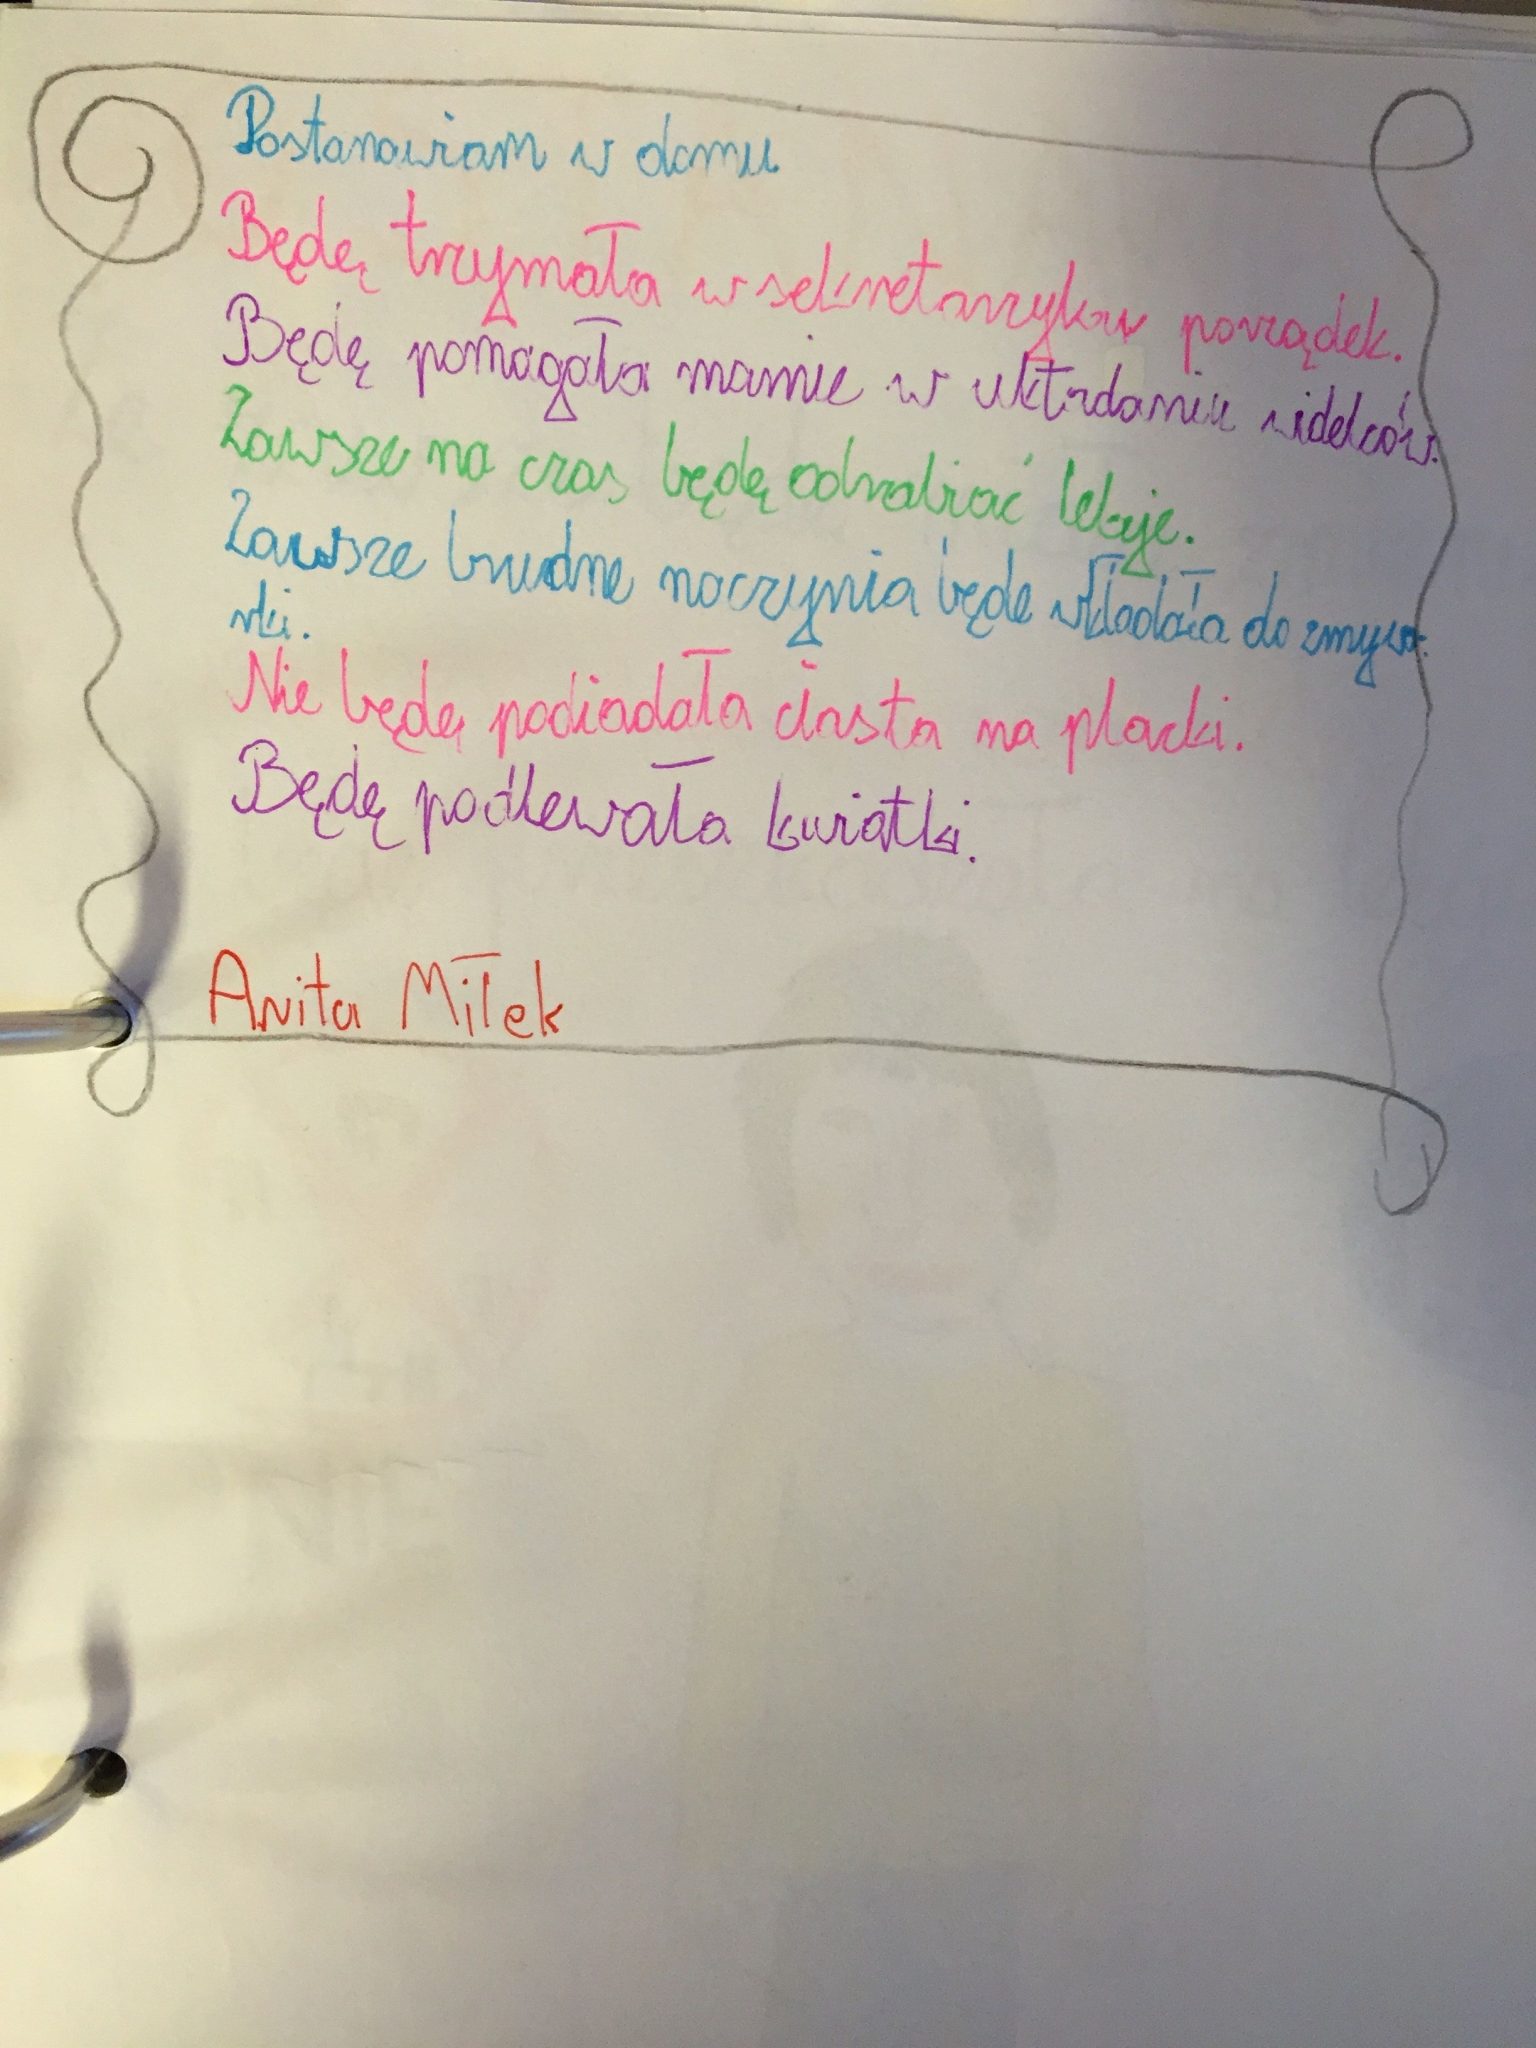 Postanawiam w domu
Będę trzymała w sekretarzyku porządek.
Będę pomagała mamie w układaniu widelców.
Zawsze na czas będę odrabiać lekcje.
Zawsze brudne naczynia będe wkładała do zmywar-
rki.
Nie będę podiadała ciasta na placki.
Będę podlewała kwiatki.
Anita Miłek